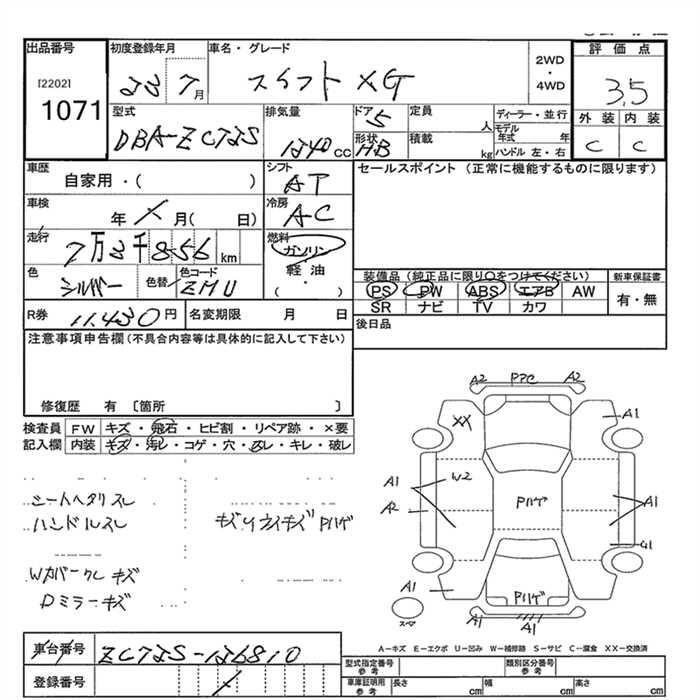 出品番号 初度登録年月 車名・グレード 評価点
[2202] 23 7月 スイフト XG 2WD・4WD 3.5
1071
型式 排気量 ドア 5 定員 人 ディーラー・並行 外装 内装
DBA-ZC72S 1240cc 形状 HB 積載 kg モデル年式 年 ハンドル 左・右 C C
車歴 自家用・( ) シフト AT セールスポイント(正常に機能するものに限ります)
車検 年 月( 日) 冷房 AC
走行 7万3千856km 燃料 ガソリン
色 シルバー 色替 色コード ZMU 軽油・( )
装備品(純正品に限り○をつけてください) 新車保証書
PS PW ABS エアB AW 有・無
SR ナビ TV カワ
R券 11,430円 名変期限 月 日 後日品
注意事項申告欄(不具合内容等は具体的に記入して下さい)
修復歴 有 〔箇所 〕
検査員 FW キズ・飛石・ヒビ割・リペア跡・×要
記入欄 内装 キズ・汚レ・コゲ・穴・スレ・キレ・破レ
シートヘタリ スレ
ハンドルスレ
Wカバークレ キズ
Dミラーキズ
A2 A2
XX A1
A1 W2
A2 Pハゲ A1
A1 Pハゲ
スペア A1 A1
A-キズ E-エクボ U-凹み W-補修跡 S-サビ C-腐食 XX-交換済
車台番号 ZC72S-126810
登録番号
型式指定番号 参考 類別区分番号 参考
車庫証明用 参考 長さ cm 幅 cm 高さ cm